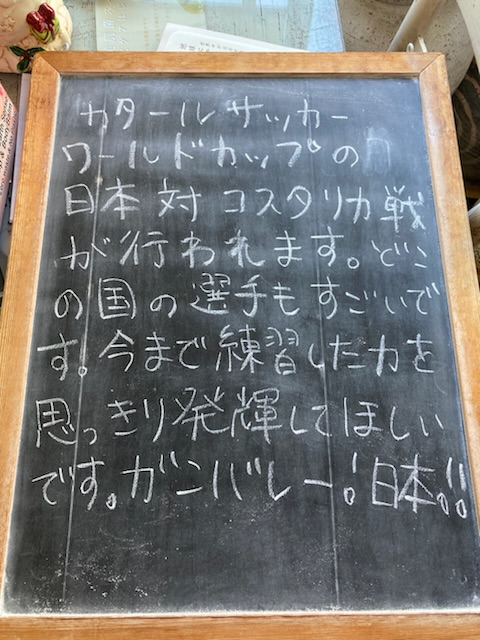 カタールサッカー
ワールドカップの
日本対コスタリカ戦
が行われます。どこ
の国の選手もすごいで
す。今まで練習した力を
思っきり発揮してほしい
です。ガンバレー!日本!!